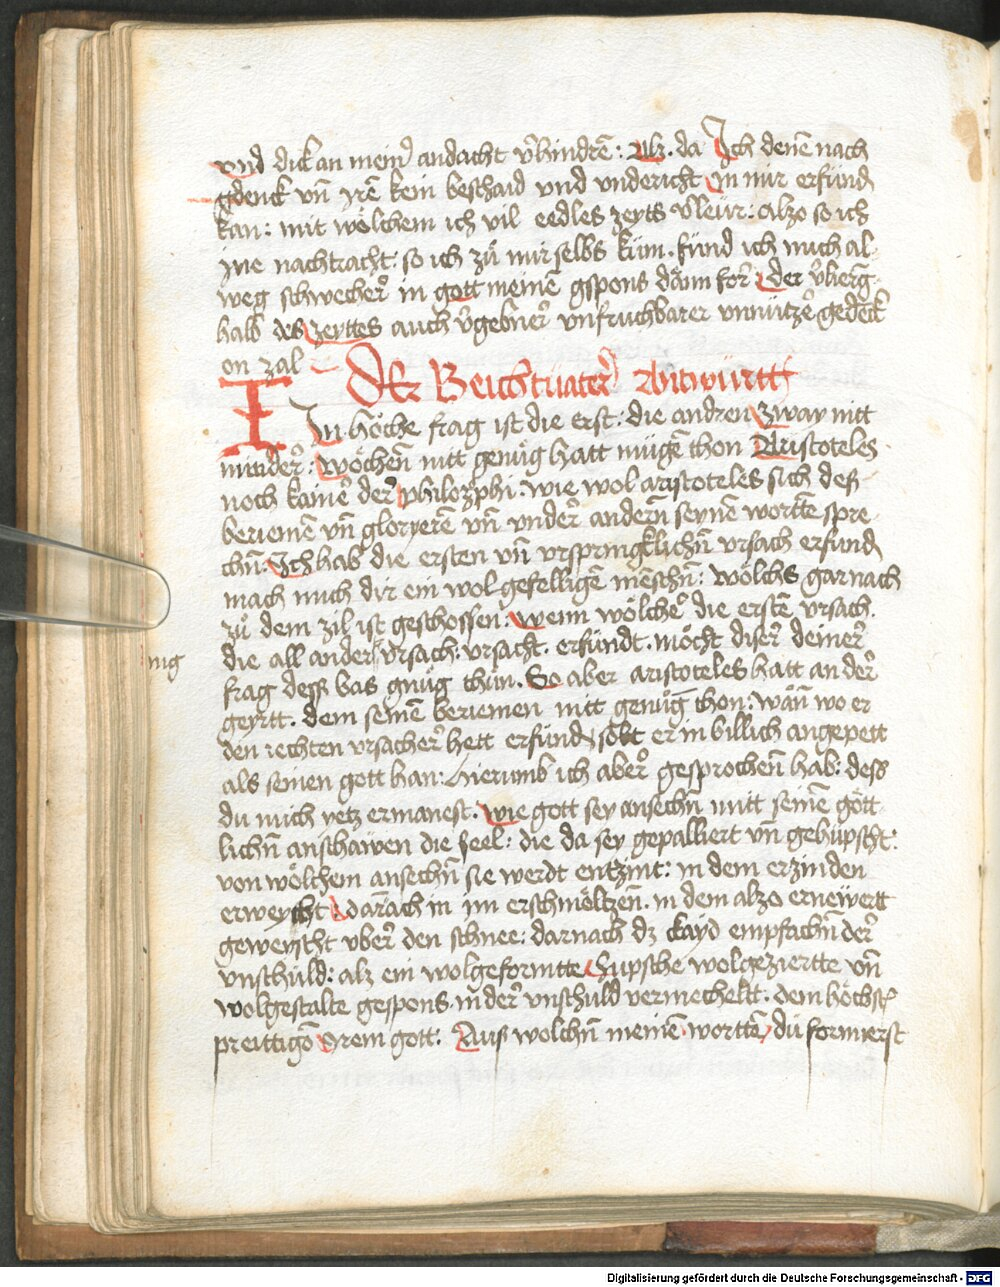 vnd dick an mein andacht v̉hindrē: Alz. da Ich denē nach
gdenck vn̄ yrē kein beschaid vnd vndericht yn mir erfund
kan: mit wölchem ich vil eedles zeyts v̉leür: alzo so ich
yne nachtracht: so ich zů mir selbs kum. fünd ich mich al-
weg schwecher in gott meinē gspons dann for der v̉berg
halb des zeyttes auch v̉gebner vnfruchbarer vnnützē gedēck
on zal
Der Beichtuater Antwürtt
In Höche frag ist die erst: die andren zway nitt
minder: wöchen̄ nitt genůg hatt mügē thon Aristoteles
noch kainē der philozophi. wie wol aristoteles sich des
beriemē vn̄ gloryerē vn̄ vnder andern̄ seynē wortte spre-
chn̄: Ich hab die ersten vn̄ vrspringklichn̄ vrsach erfund
mach mich dir ein wolgefelligē menschn̄: wölchs gar nach
zů dem zil ist geschossen: wenn wölchē die erstē vrsach.
die all ander vrsach: vrsacht. erfündt. möcht diser deiner
nig
frag dess bas gnůg thůn. So aber aristoteles hatt an der
geyrtt. dem seinē beriemen nitt genůg thon: wān wo er
den rechten vrsacher hett erfund, solt er in billich angepett
als seinen gott han: Hierumb ich aber gesprochen̄ hab: dess
du mich yetz ermanest. wie gott sey ansechn̄ mitt seinē gött
lichn̄ anschawen die seel: die da sey gepalliert vn̄ gehüpscht:
von wölchem ansechn̄ sie werdt entzint: in dem erzinden
erweycht darnach in im erschmöltzen̄. in dem alzo erneẅert
geweyscht vber den schnee: darnach dz clayd empfachn̄ der
vnschuld: alz ein wolgeformtte hüpsche wolgeziertte vn̄
wolgestalte gespons. in der vnschuld vermecheltt. dem höchst
preittigō irem gott. Aus wolchn̄ meinē worttē du formierst
Digitalisierung gefördert durch die Deutsche Forschungsgemeinschaft - DFG